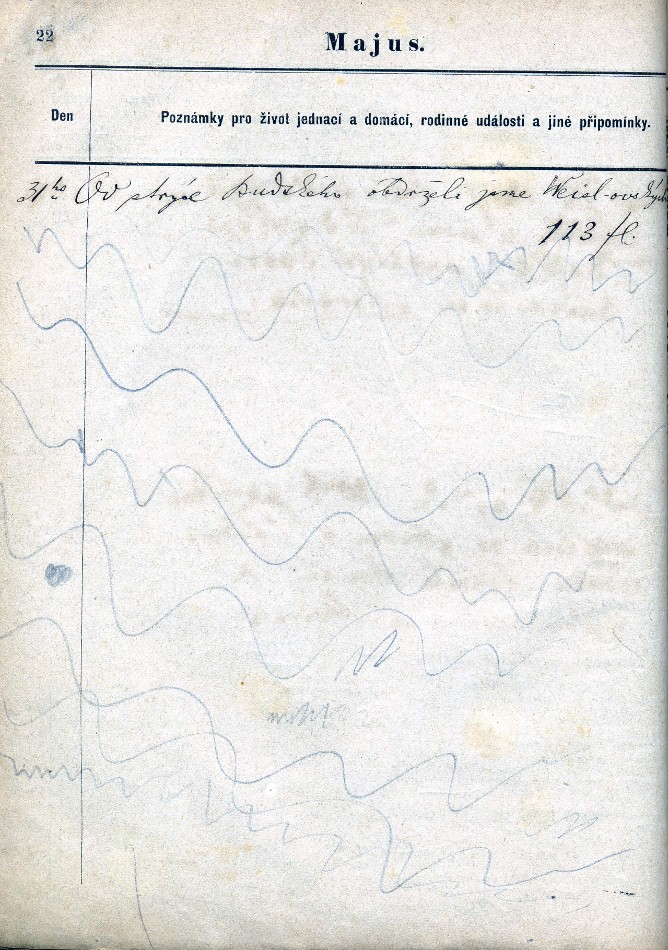 22
Majus.
Den
Poznámky pro život jednací a domácí, rodinné události a jiné připomínky.
31ho Od strýce Budského obdrželi jsme
113 fl.